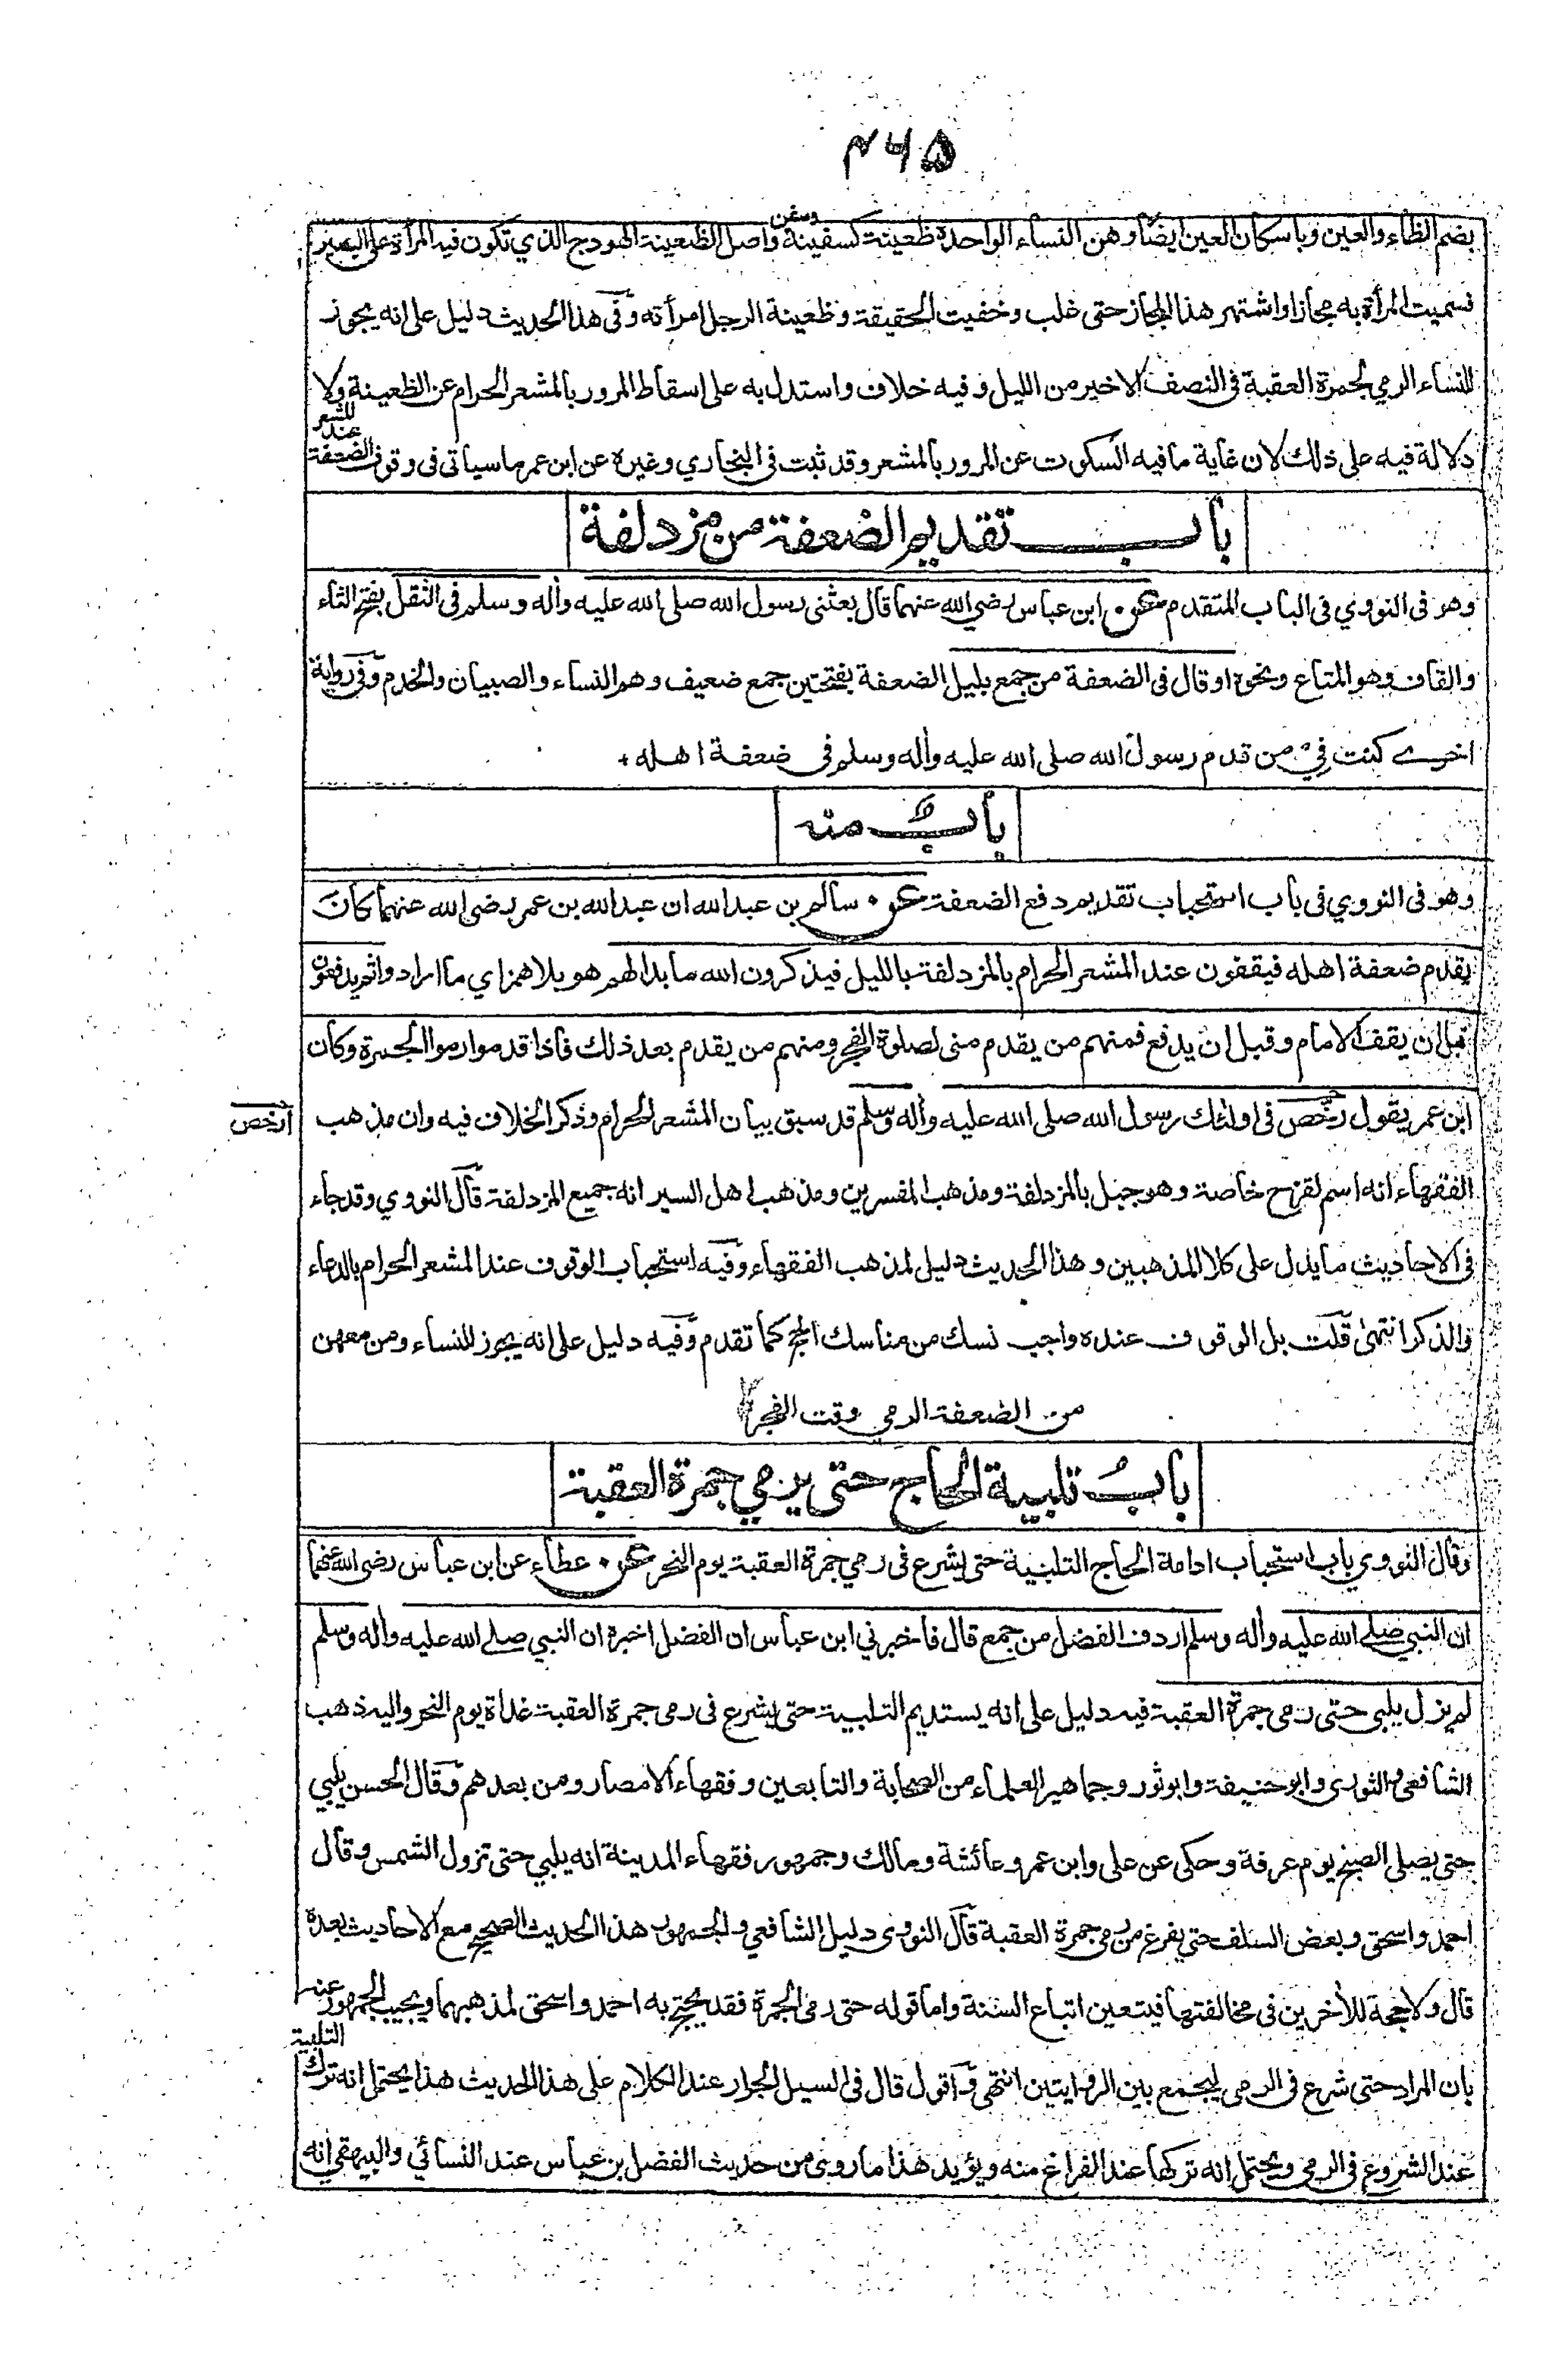 ٤٦٥
بضم الظاء والعين وباسكان العين ايضا وهن النساء الواحدة ظعينة كسفينة وسفن واصل الظعينة الهودج الذي تكون فيه المرأة على البعير
فسميت المرأة به مجازا واشتهر هذا المجاز حتى غلب وخفيت الحقيقة وظعينة الرجل امرأته وفى هذا الحديث دليل على انه يجوز
للنساء الرمي لجمرة العقبة فى النصف الاخير من الليل وفيه خلاف واستدل به على اسقاط المرور بالمشعر الحرام عن الظعينة ولا
دلالة فيه على ذلك لان غاية ما فيه السكوت عن المرور بالمشعر وقد ثبت فى البخاري وغيره عن ابن عمر ما سيأتى فى وقوف الضعفة عند المشعر
باب تقديم الضعفة من مزدلفة
وهو فى النووي فى الباب المتقدم عن ابن عباس رضي الله عنهما قال بعثنى رسول الله صلى الله عليه وأله وسلم فى الثقل بفتح الثاء
والقاف وهو المتاع ونحوه او قال فى الضعفة من جمع بليل الضعفة بفتحتين جمع ضعيف وهم النساء والصبيان والخدم وفى رواية
اخرے كنت فى من قدم رسول الله صلى الله عليه وأله وسلم فى ضعفة اهله +
باب منه
وهو فى النووي فى باب استحباب تقديم دفع الضعفة عن سالم بن عبد الله ان عبد الله بن عمر رضى الله عنهما كان
يقدم ضعفة اهله فيقفون عند المشعر الحرام بالمزدلفة بالليل فيذكرون الله ما بدا لهم هو بلا همز اي ما ارادوا ثم يدفعون
قبل ان يقف الامام وقبل ان يدفع فمنهم من يقدم منى لصلوة الفجر ومنهم من يقدم بعد ذلك فاذا قدموا رموا الجمرة وكان
ابن عمر يقول رخّص فى اولئك رسول الله صلى الله عليه وأله وسلم قد سبق بيان المشعر الحرام وذكر الخلاف فيه وان مذهب
ارخص
الفقهاء انه اسم لقزح خاصة وهو جبل بالمزدلفة ومذهب المفسرين ومذهب اهل السير انه جميع المزدلفة قال النووي وقد جاء
فى الاحاديث ما يدل على كلا المذهبين وهذا الحديث دليل لمذهب الفقهاء وفيه استحباب الوقوف عند المشعر الحرام بالدعاء
والذكر انتهىٰ قلت بل الوقوف عنده واجب نسك من مناسك الحج كما تقدم وفيه دليل على انه يجوز للنساء ومن معهن
من الضعفة الرمى وقت الفجر
بابُ تلبية الحاج حتى يرمي جمرة العقبة
وقال النووي باب استحباب ادامة الحاج التلبية حتى يشرع فى رمي جمرة العقبة يوم النحر عن عطاء عن ابن عباس رضى الله عنهما
ان النبي صلے الله عليه وأله وسلم اردف الفضل من جمع قال فاخبرني ابن عباس ان الفضل اخبره ان النبي صلے الله عليه وأله وسلم
لم يزل يلبى حتى رمى جمرة العقبة فيه دليل على انه يستديم التلبية حتى يشرع فى رمى جمرة العقبة غداة يوم النحر واليه ذهب
الشافعى والثورى وابو حنيفة وابو ثور وجماهير العلماء من الصحابة والتابعين وفقهاء الامصار ومن بعدهم وقال الحسن يلبي
حتى يصلى الصبح يوم عرفة وحكى عن على وابن عمر وعائشة ومالك وجمهور فقهاء المدينة انه يلبي حتى تزول الشمس وقال
احمد واسحق وبعض السلف حتى يفرغ من رمى جمرة العقبة قال النووى دليل الشافعي والجمهور هذا الحديث الصحيح مع الاحاديث بعده
قال ولا حجة للأخرين فى مخالفتها فيتعين اتباع السنة واما قوله حتى رمى الجمرة فقد يحتج به احمد واسحق لمذهبهما ويجيب الجمهور عنه
بان المراد حتى شرع فى الرمى ليجمع بين الروايتين انتهى واقول قال فى السيل الجرار عند الكلام على هذا الحديث هذا يحتمل انه ترك التلبية
عند الشروع فى الرمى ويحتمل انه تركها عند الفراغ منه ويؤيد هذا ما روى من حديث الفضل بن عباس عند النسائي والبيهقي انه